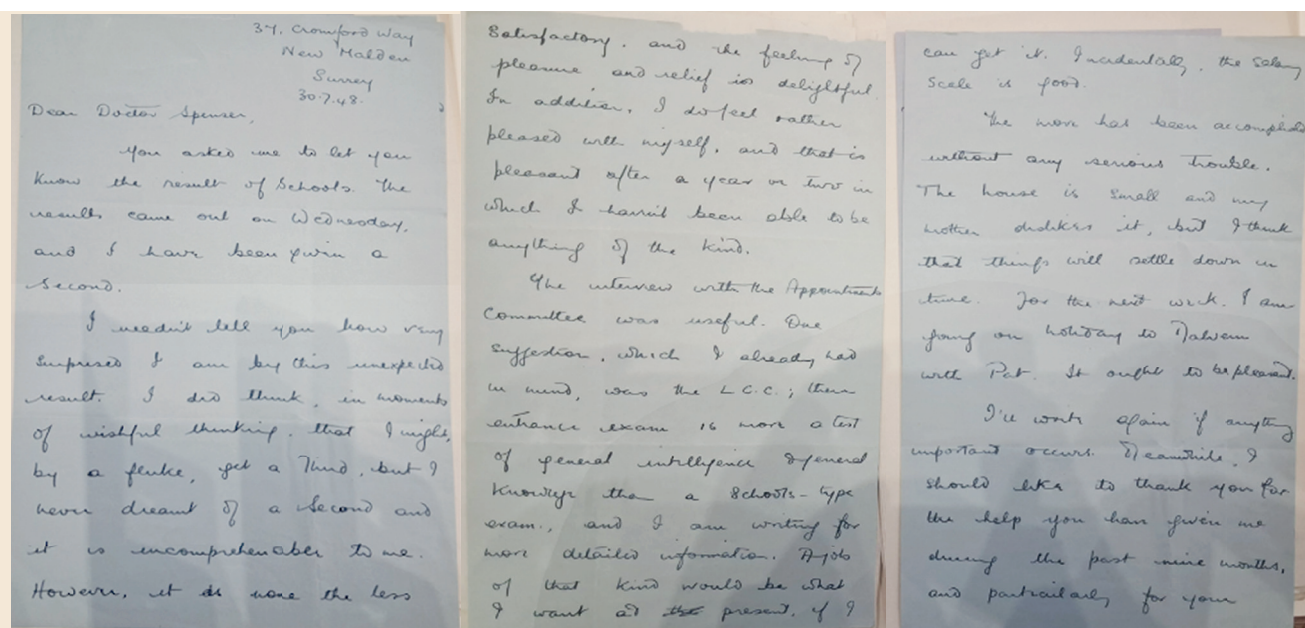 37, Cromford Way
New Malden
Surrey
30.7.48.
Dear Doctor Spenser,
You asked me to let you
know the result of Schools. The
results came out on Wednesday,
and I have been given a
Second.
I needn't tell you how very
surprised I am by this unexpected
result. I did think, in moments
of wishful thinking, that I might,
by a fluke, get a Third, but I
never dreamt of a Second and
it is incomprehensible to me.
However, it is none the less
satisfactory, and the feeling of
pleasure and relief is delightful.
In addition, I do feel rather
pleased with myself, and that is
pleasant after a year or two in
which I haven't been able to be
anything of the kind.
The interview with the Appointments
Committee was useful. One
suggestion, which I already had
in mind, was the L.C.C.; their
entrance exam is more a test
of general intelligence & general
knowledge than a Schools-type
exam., and I am writing for
more detailed information. A job
of that kind would be what
I want at the present, if I
can get it. Incidentally, the salary
scale is good.
The move has been accomplished
without any serious trouble.
The house is small and my
mother dislikes it, but I think
that things will settle down in
time. For the next week I am
going on holiday to Malvern
with Pat. It ought to be pleasant.
I'll write again if anything
important occurs. Meanwhile, I
should like to thank you for
the help you have given me
during the past nine months,
and particularly for your